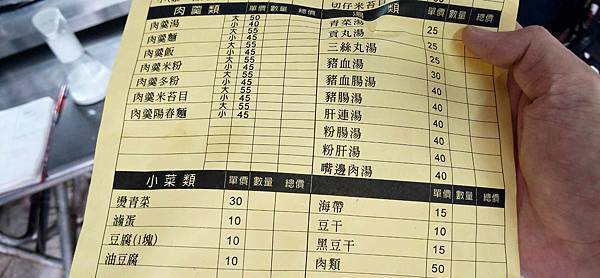 肉羹類 單價 數量 總價
肉羹湯 大 50 小 40
肉羹麵 大 55 小 45
肉羹飯 大 55 小 45
肉羹米粉 大 55 小 45
肉羹冬粉 大 55 小 45
肉羹米苔目 大 55 小 45
肉羹陽春麵 大 55 小 45
切仔米苔
湯類 單價 數量 總價
青菜湯 25
貢丸湯 25
三絲丸湯 25
豬血湯 30
豬血腸湯 40
豬腸湯 40
肝連湯 40
粉腸湯 40
粉肝湯 40
嘴邊肉湯 40
小菜類 單價 數量 總價
燙青菜 30
滷蛋 10
豆腐(1塊) 10
油豆腐 10
單價 數量 總價
海帶 15
豆干 10
黑豆干 15
肉類 50